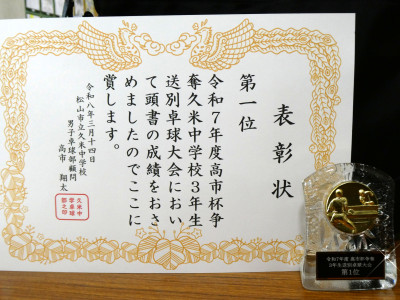 表彰状
第一位
令和7年度高市杯争
奪久米中学校3年生
送別卓球大会におい
て頭書の成績をおさ
めましたのでここに
賞します。
令和八年三月十四日
松山市立久米中学校
男子卓球部顧問
高市 翔太
久米中
学卓球
部之印
令和7年度 高市杯争奪
3年生送別卓球大会
第1位